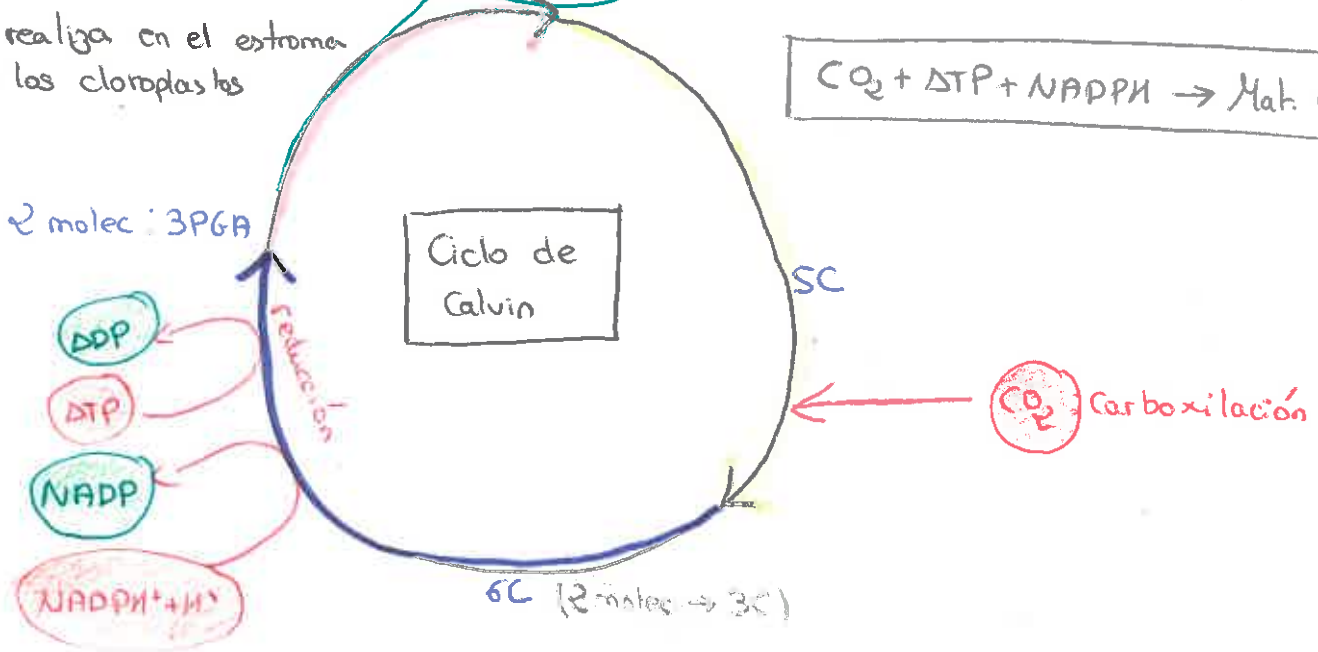 realiza en el estroma
los cloroplastos
CO₂ + ATP + NADPH → Mat.
2 molec : 3PGA
Ciclo de
Calvin
5C
ADP
ATP
reducción
CO₂ Carboxilación
NADP
NADPH⁺+H⁺
6C (2 molec → 3C)